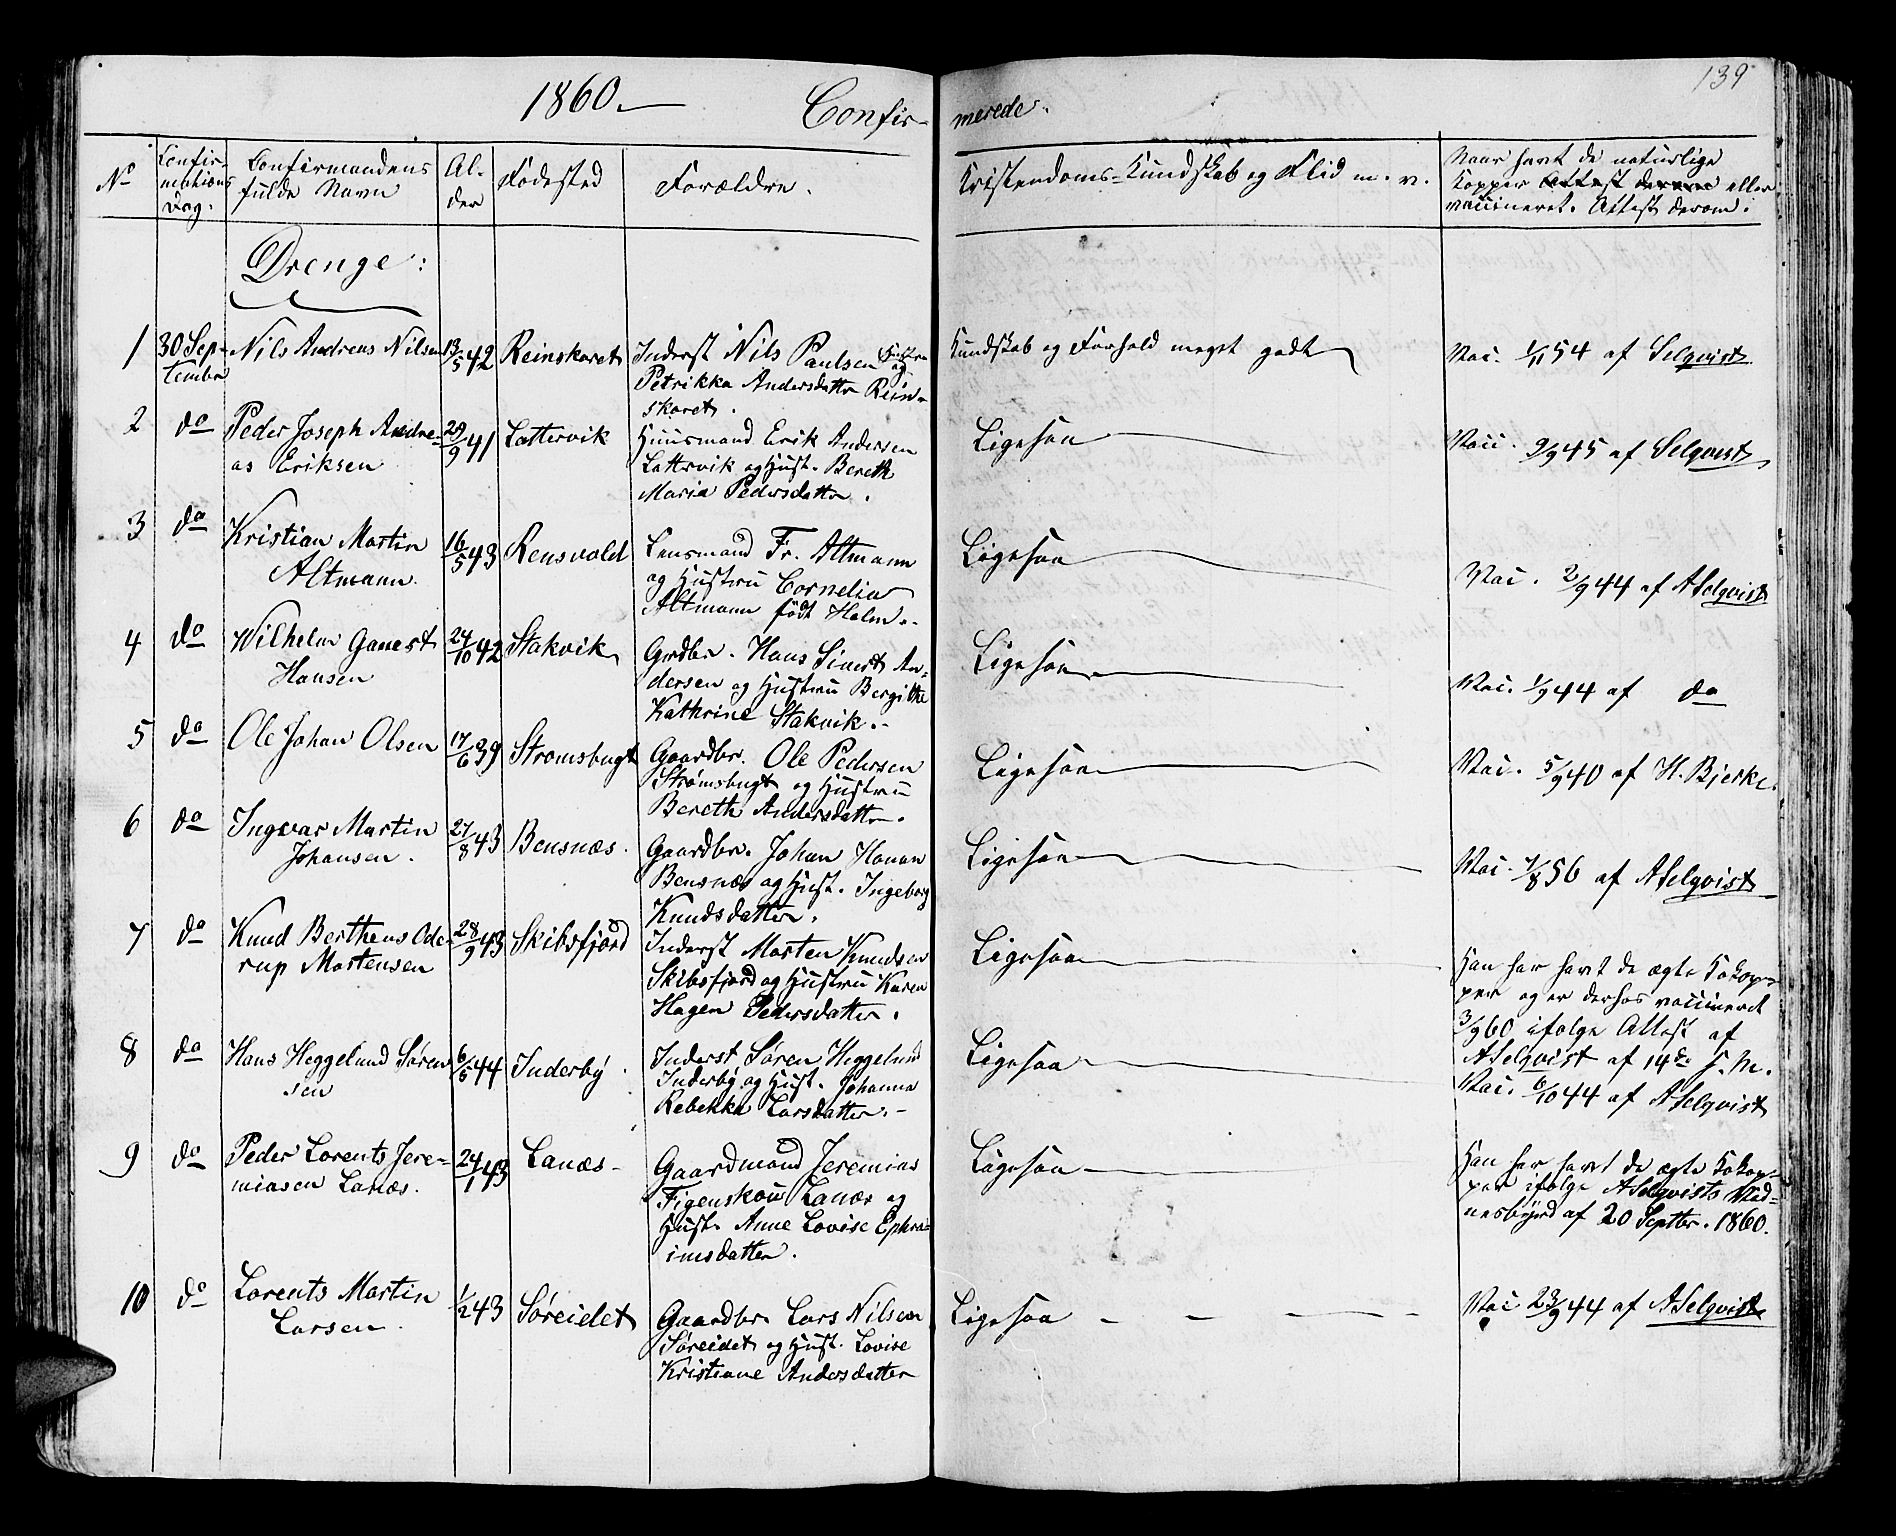 139
1860.— Confir- merede.
No | Confir-mations Dag. | Confirmandens fulde Navn | Al-der | Fødested | Forældre. | Kristendoms-Kundskab og Flid m. v. | Naar havt de naturlige Kopper Attest derom eller vaccineret. Attest derom.
Drenge:
1 | 30 Sep-tember | Nils Andreas Nilsen | 13/5 42 | Reinskaret | Inderst Nils Paulsen og Hustru Petrikka Andersdatter Rein-skaret. | Kundskab og Forhold meget godt | Vac. 1/11 54 af Selqvist
2 | do | Peder Joseph Andre-as Eriksen | 29/9 41 | Lattervik | Huusmand Erik Andersen Lattervik og Hust. Bereth Maria Pedersdatter. | Ligesaa | Vacc. 9/9 45 af Selqvist
3 | do | Kristian Martin Altmann. | 16/5 43 | Rensvold | Lensmand Fr. Altmann og Hustru Cornelia Altmann født Holm.- | Ligesaa | Vac. 2/9 44 af ASelqvist
4 | do | Wilhelm Hansen | 24/10 42 | Stakvik | Grdbr. Hans Sivert An-dersen og Hustru Bergitthe Kathrine Stakvik.- | Ligesaa | Vac. 1/9 44 af do
5 | do | Ole Johan Olsen | 17/6 39 | Stromsbugt | Gaardbr. Ole Pedersen Strømsbugt og Hustru Bereth Andersdatter. | Ligesaa | Vac. 5/9 40 af H. Bjerke.
6 | do | Ingvar Martin Johansen. | 27/8 43 | Bensnæs. | Gaardbr. Johan Bensnæs og Hust. Ingeborg Knudsdatter. | Ligesaa | Vac. 7/8 56 af ASelqvist
7 | do | Knud Bertheus Ode-rup Mortensen | 28/9 43 | Skibsfjord | Inderst Morten Knudsen Skibsfjord og Hustru Karen Hagen Pedersdatter. | Ligesaa | Han har havt de ægte Kokop-per og er derhos vaccineret 3/9 60 ifølge Attest af ASelqvist af 14de s. M.
8 | do | Hans Heggelund Søren-sen | 6/5 44 | Inderby. | Inderst Søren Heggelund Inderby og Hust. Johanna Rebekka Larsdatter.- | Ligesaa | Vac. 6/10 44 af ASelqvist
9 | do | Peder Lorents Jere-miasen Lanæs. | 24/1 43 | Lanæs- | Gaardmand Jeremias Figenskou Lanæs og Hust. Anne Lovise Ephra-imsdatter. | Ligesaa | Han har havt de ægte Kokop-per ifølge ASelqvists Vid-nesbyrd af 20 Septbr. 1860.
10 | do | Lorents Martin Larsen. | 1/2 43 | Søreidet | Gaardbr. Lars Nilsen Søreidet og Hust. Lovise Kristiane Andersdatter | Ligesaa - - - - | Vac 23/9 44 af ASelqvist